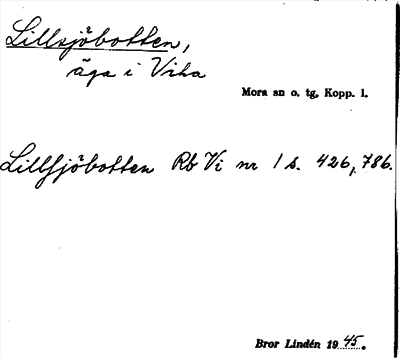 Lillsjöbotten,
äga i Vika
Mora sn o. tg, Kopp. l.
Lillsjöbotten Rb Vi nr 1 s. 426, 786.
Bror Lindén 1945.